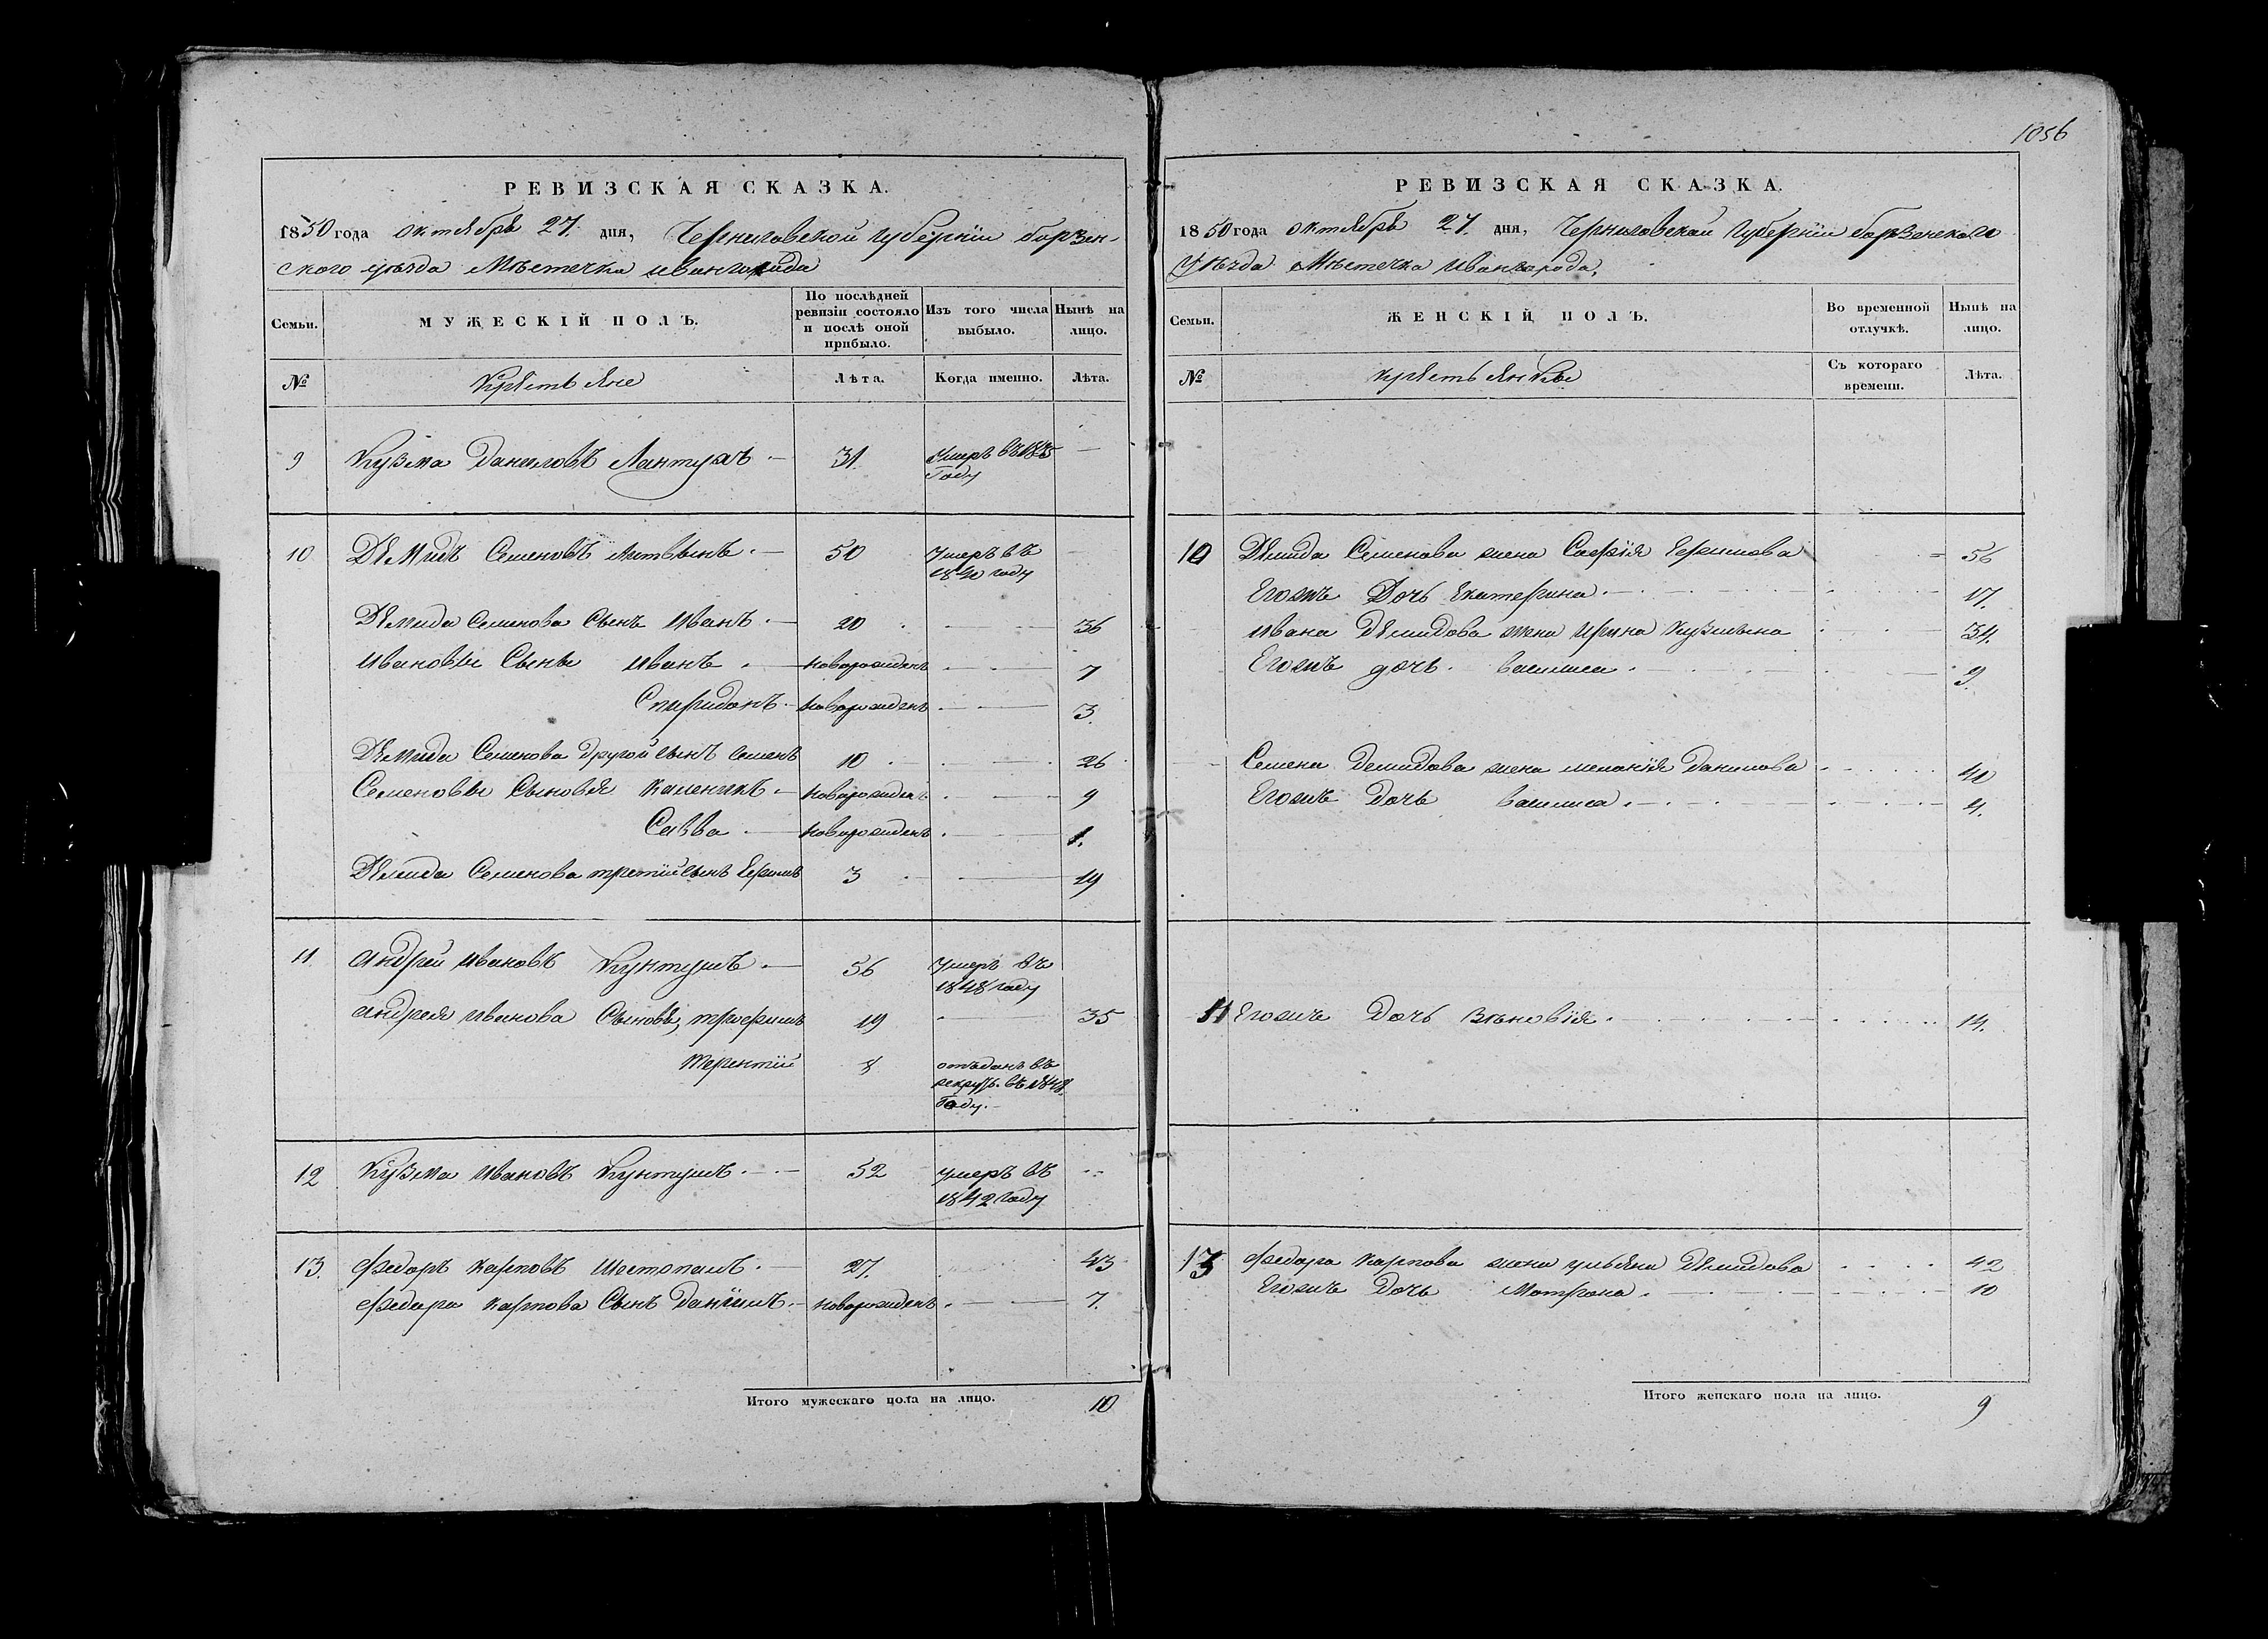 РЕВИЗСКАЯ СКАЗКА.
1850 года октября 27. дня, Черниговской губернїи борзен-
ского уѣзда Мѣстечка ивангорода
Семьи.
МУЖЕСКІЙ ПОЛЪ.
По послѣдней ревизіи состояло и послѣ оной прибыло.
Изъ того числа выбыло.
Нынѣ на лицо.
№
Крѣстьяне
Лѣта.
Когда именно.
Лѣта.
9 Кузма Даниловъ Лантухъ 31. Умеръ въ 1835
Году
10 Демидъ Семеновъ Литвынъ 50 Умеръ въ
1840 году
Демида Семенова Сынъ Иванъ 20 36
Ивановы Сыны Иванъ новорожденъ 7
Спиридонъ новорожденъ 3.
Демида Семенова другой сынъ Семенъ 10 26
Семеновы Сыновья новорожденъ 9
Савва новорожденъ 1.
Демида Семенова третїй сынъ 3 19
11. Андрей Ивановъ Кунтушъ 56 Умеръ въ
1848 году
Андрея Иванова Сыновья, трофимъ 19 35
Терентїй 8 отъданъ въ
рекруты въ 1848
Году.
12 Кузма Ивановъ Кунтушъ 52 умеръ въ
1842 году
13. Федоръ Карповъ Шестопалъ 27. 43
Федора Карпова Сынъ Данїилъ новорожденъ 7.
Итого мужескаго пола на лицо. 10
1056
РЕВИЗСКАЯ СКАЗКА.
1850 года октября 27. дня, Черниговской Губернїи борзенскаго
Уѣзда Мѣстечка Ивангорода,
Семьи.
ЖЕНСКІЙ ПОЛЪ.
Во временной отлучкѣ.
Нынѣ на лицо.
№
крѣстьянки
Съ котораго времени.
Лѣта.
10 Демида Семенова жена Софїя Ефимова 56
Егожъ Дочь Екатерина 17.
Ивана Демидова жена Ирина Кузмына 34.
Егожъ дочь василиса 9.
Семена Демидова жена меланїя Данилова 40
Егожъ Дочь василиса 4.
11 Егожъ Дочь Зѣновїя 14.
13 Федора Карпова жена ульяна Демидова 42
Егожъ Дочь Мотрона 10
Итого женскаго пола на лицо. 9